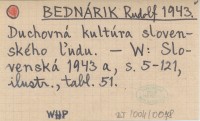 BEDNÁRIK Rudolf 1943.
Duchovná kultúra sloven-
ského ľudu. – W: Slo-
venská 1943 a, s. 5-121,
ilustr., tabl. 51.